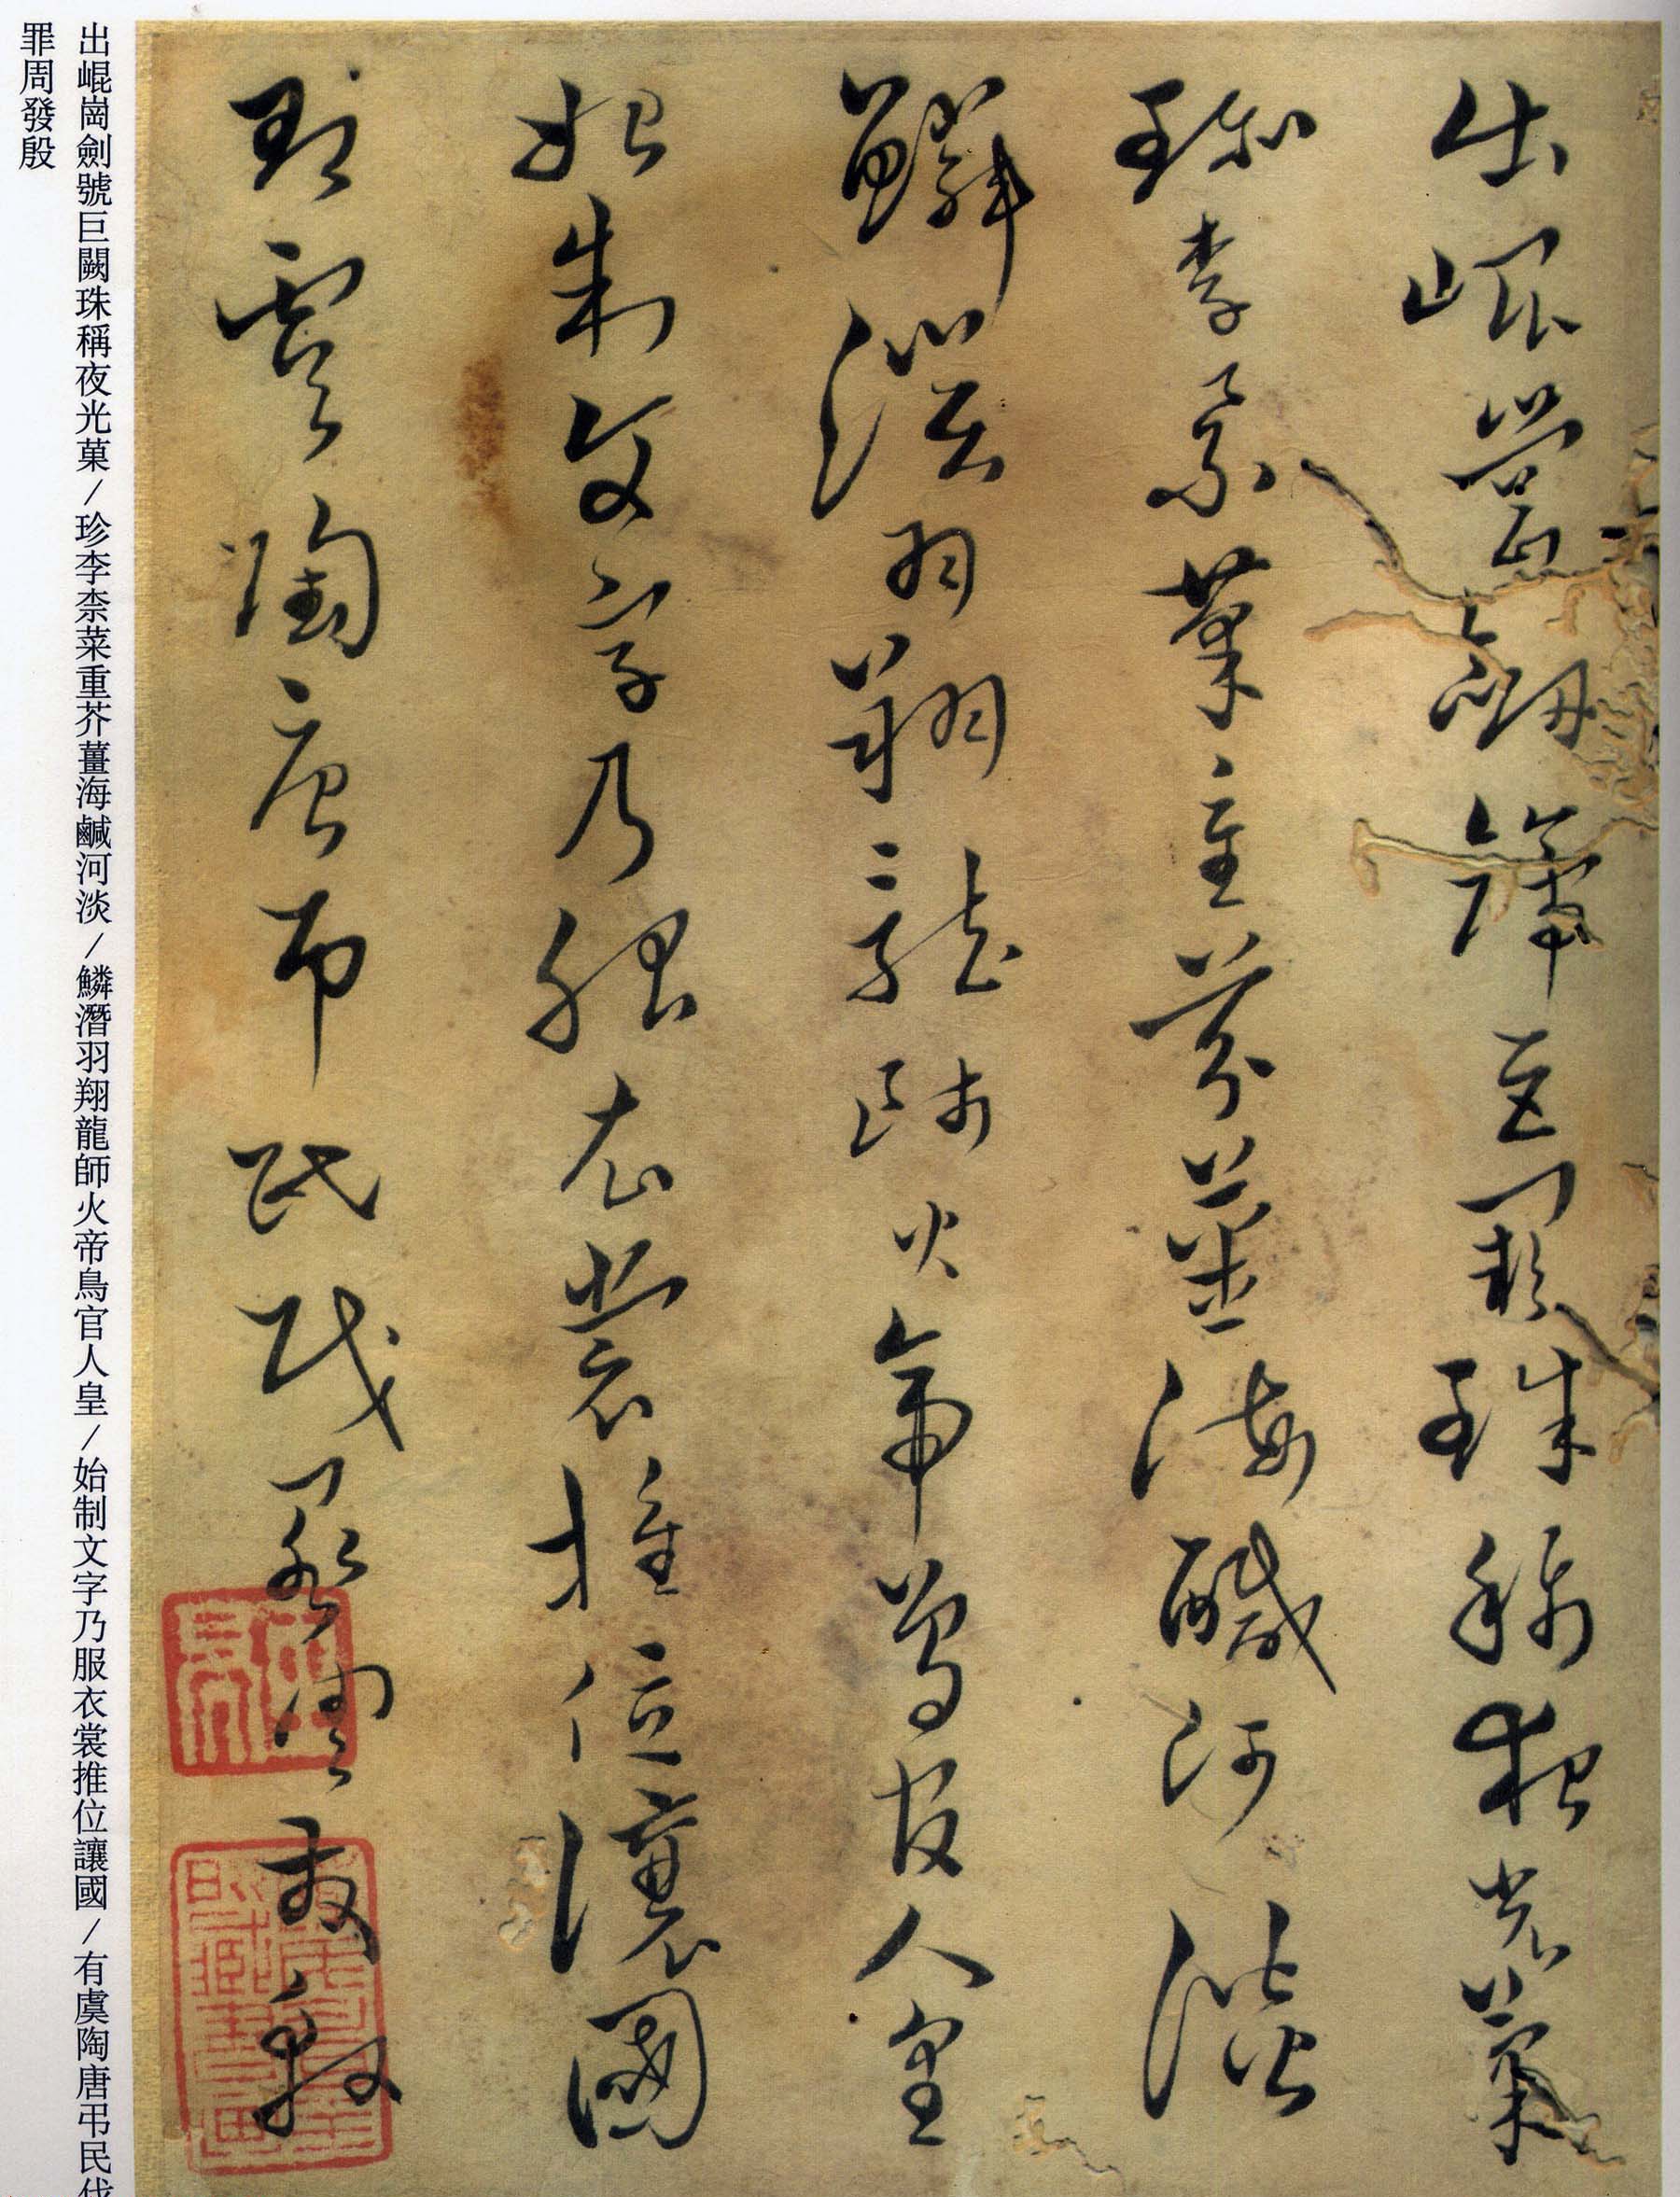 出崐崗劍號巨闕珠稱夜光菓
珍李柰菜重芥薑海鹹河淡
鱗潛羽翔龍師火帝鳥官人皇
始制文字乃服衣裳推位讓國
有虞陶唐弔民伐罪周發殷
出崐崗劍號巨闕珠稱夜光菓/珍李柰菜重芥薑海鹹河淡/鱗潛羽翔龍師火帝鳥官人皇/始制文字乃服衣裳推位讓國/有虞陶唐吊民伐
罪周發殷